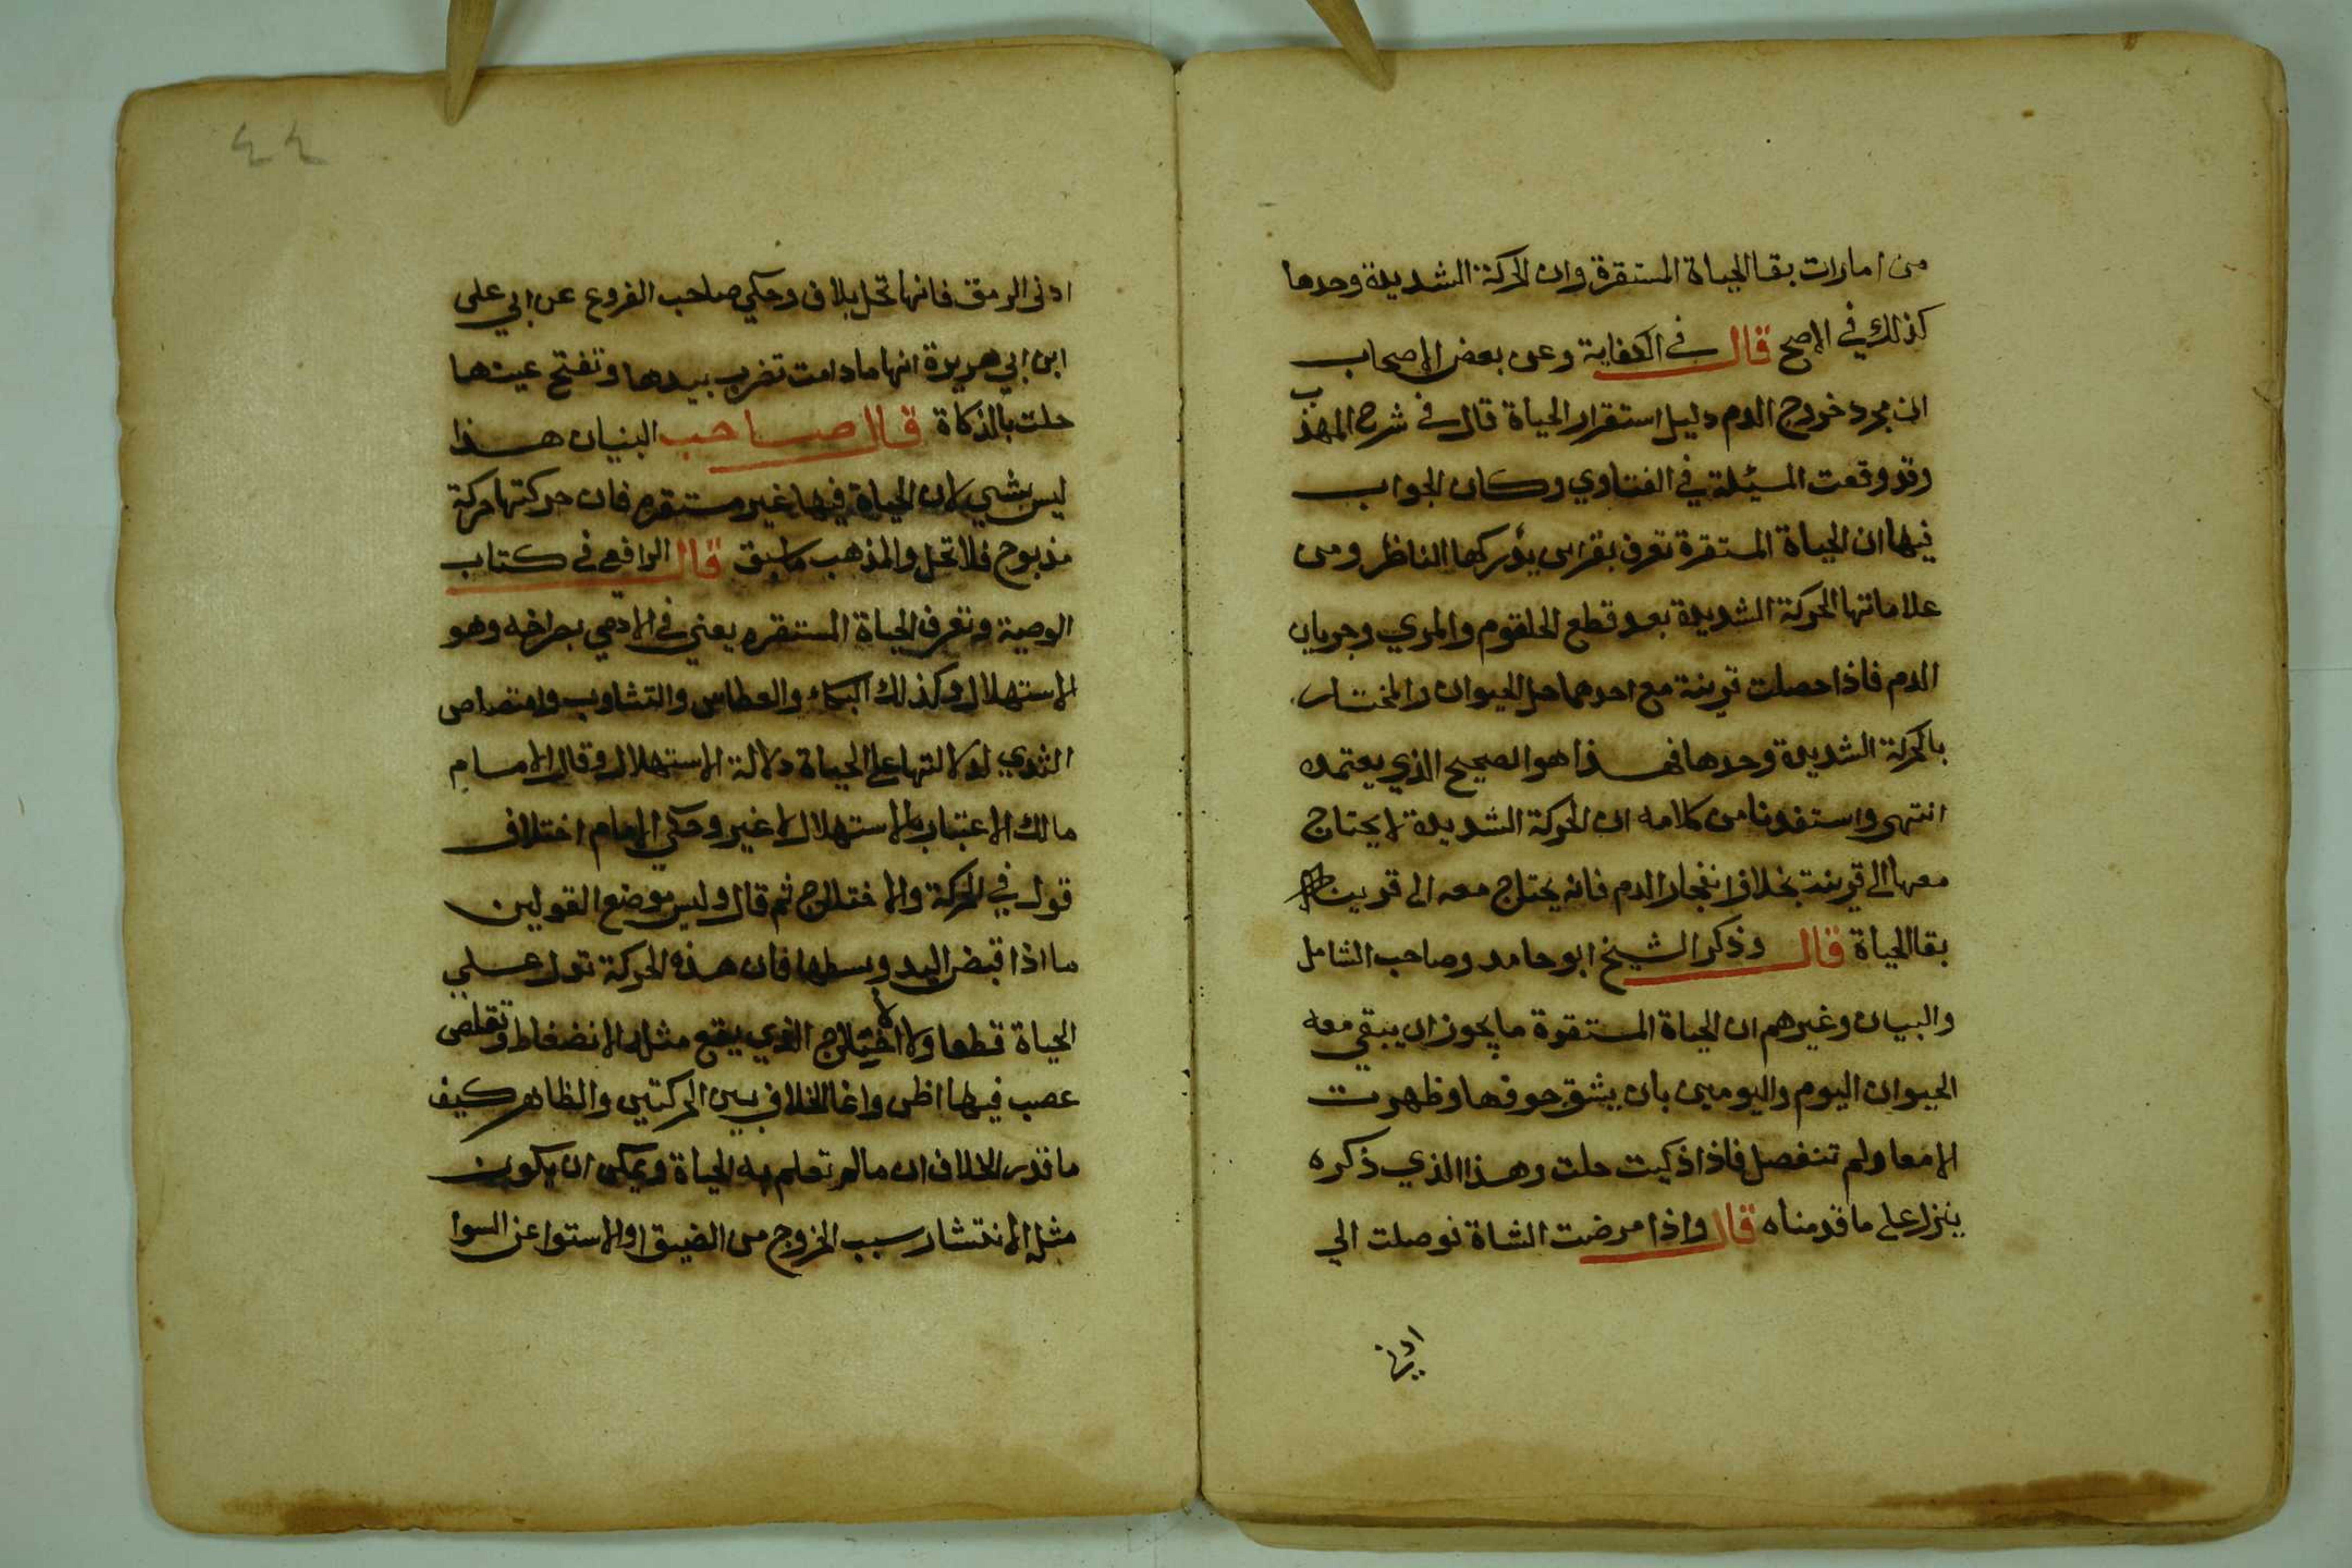 من امارات بقا الحياة المستقرة وان الحركة الشديدة وحدها
كذلك في الاصح قال في الكفاية وعن بعض الاصحاب
ان مجرد خروج الدم دليل استقرار الحياة قال في شرح المهذب
وقد وقعت المسئلة في الفتاوي وكان الجواب
فيها ان الحياة المستقرة تعرف بقراين يدركها الناظر ومن
علاماتها الحركة الشديدة بعد قطع الحلقوم والمري وجريان
الدم فاذا حصلت قرينة مع احدهما حل الحيوان والمختار
بالحركة الشديدة وحدها فهذا هو الصحيح الذي يعتمده
انتهى واستفدنا من كلامه ان الحركة الشديدة لا يحتاج
معها الى قرينة بخلاف انفجار الدم فانه يحتاج معه الى قرينة
بقا الحياة قال وذكر الشيخ ابو حامد وصاحب الشامل
والبيان وغيرهم ان الحياة المستقوة ما يجوز ان يبقي معه
الحيوان اليوم واليومين بان يشق جوفها وظهرت
الامعا ولم تنفصل فاذا ذكيت حلت وهذا الذي ذكره
ينزل على ما قدمناه قال واذا مرضت الشاة فوصلت الي
ادنى
٤٤
ادنى الرمق فانها تحل بلاف وحكي صاحب الفروع عن ابي على
ابن ابي هريرة انها مادامت تضرب بيدها وتفتح عينها
حلت بالذكاة قال صاحب البنيان هذا
ليس بشي لان الحياة فيها غير مستقره فان حركتها حركة
مذبوح فلا تحل والمذهب ماسبق قال الرافعي في كتاب
الوصية وتعرف الحياة المستقره يعني في الادمي بصراخه وهو
الاستهلال وكذلك البكاء والعطاس والتشاوب وامتصاص
الثدي لدلالتها على الحياة دلالة الاستهلال وقال الامام
مالك الاعتبار بالاستهلال لا غير وحكي الامام اختلاف
قول في الحركة والاختلاج ثم قال وليس موضع القولين
ما اذا قبض اليد وبسطها فان هذه الحركة تدل علي
الحياة قطعا ولا الاختلاج الذي يقع مثله لانضغاط وتقلص
عصب فيها اظن وانما الخلاف بين الحركتين والظاهر كيف
ما قدر الخلاف ان مالم تعلم به الحياة ويمكن ان يكون
مثل الانتشار سبب الخروج من الضيق او الاستوا عن السوا